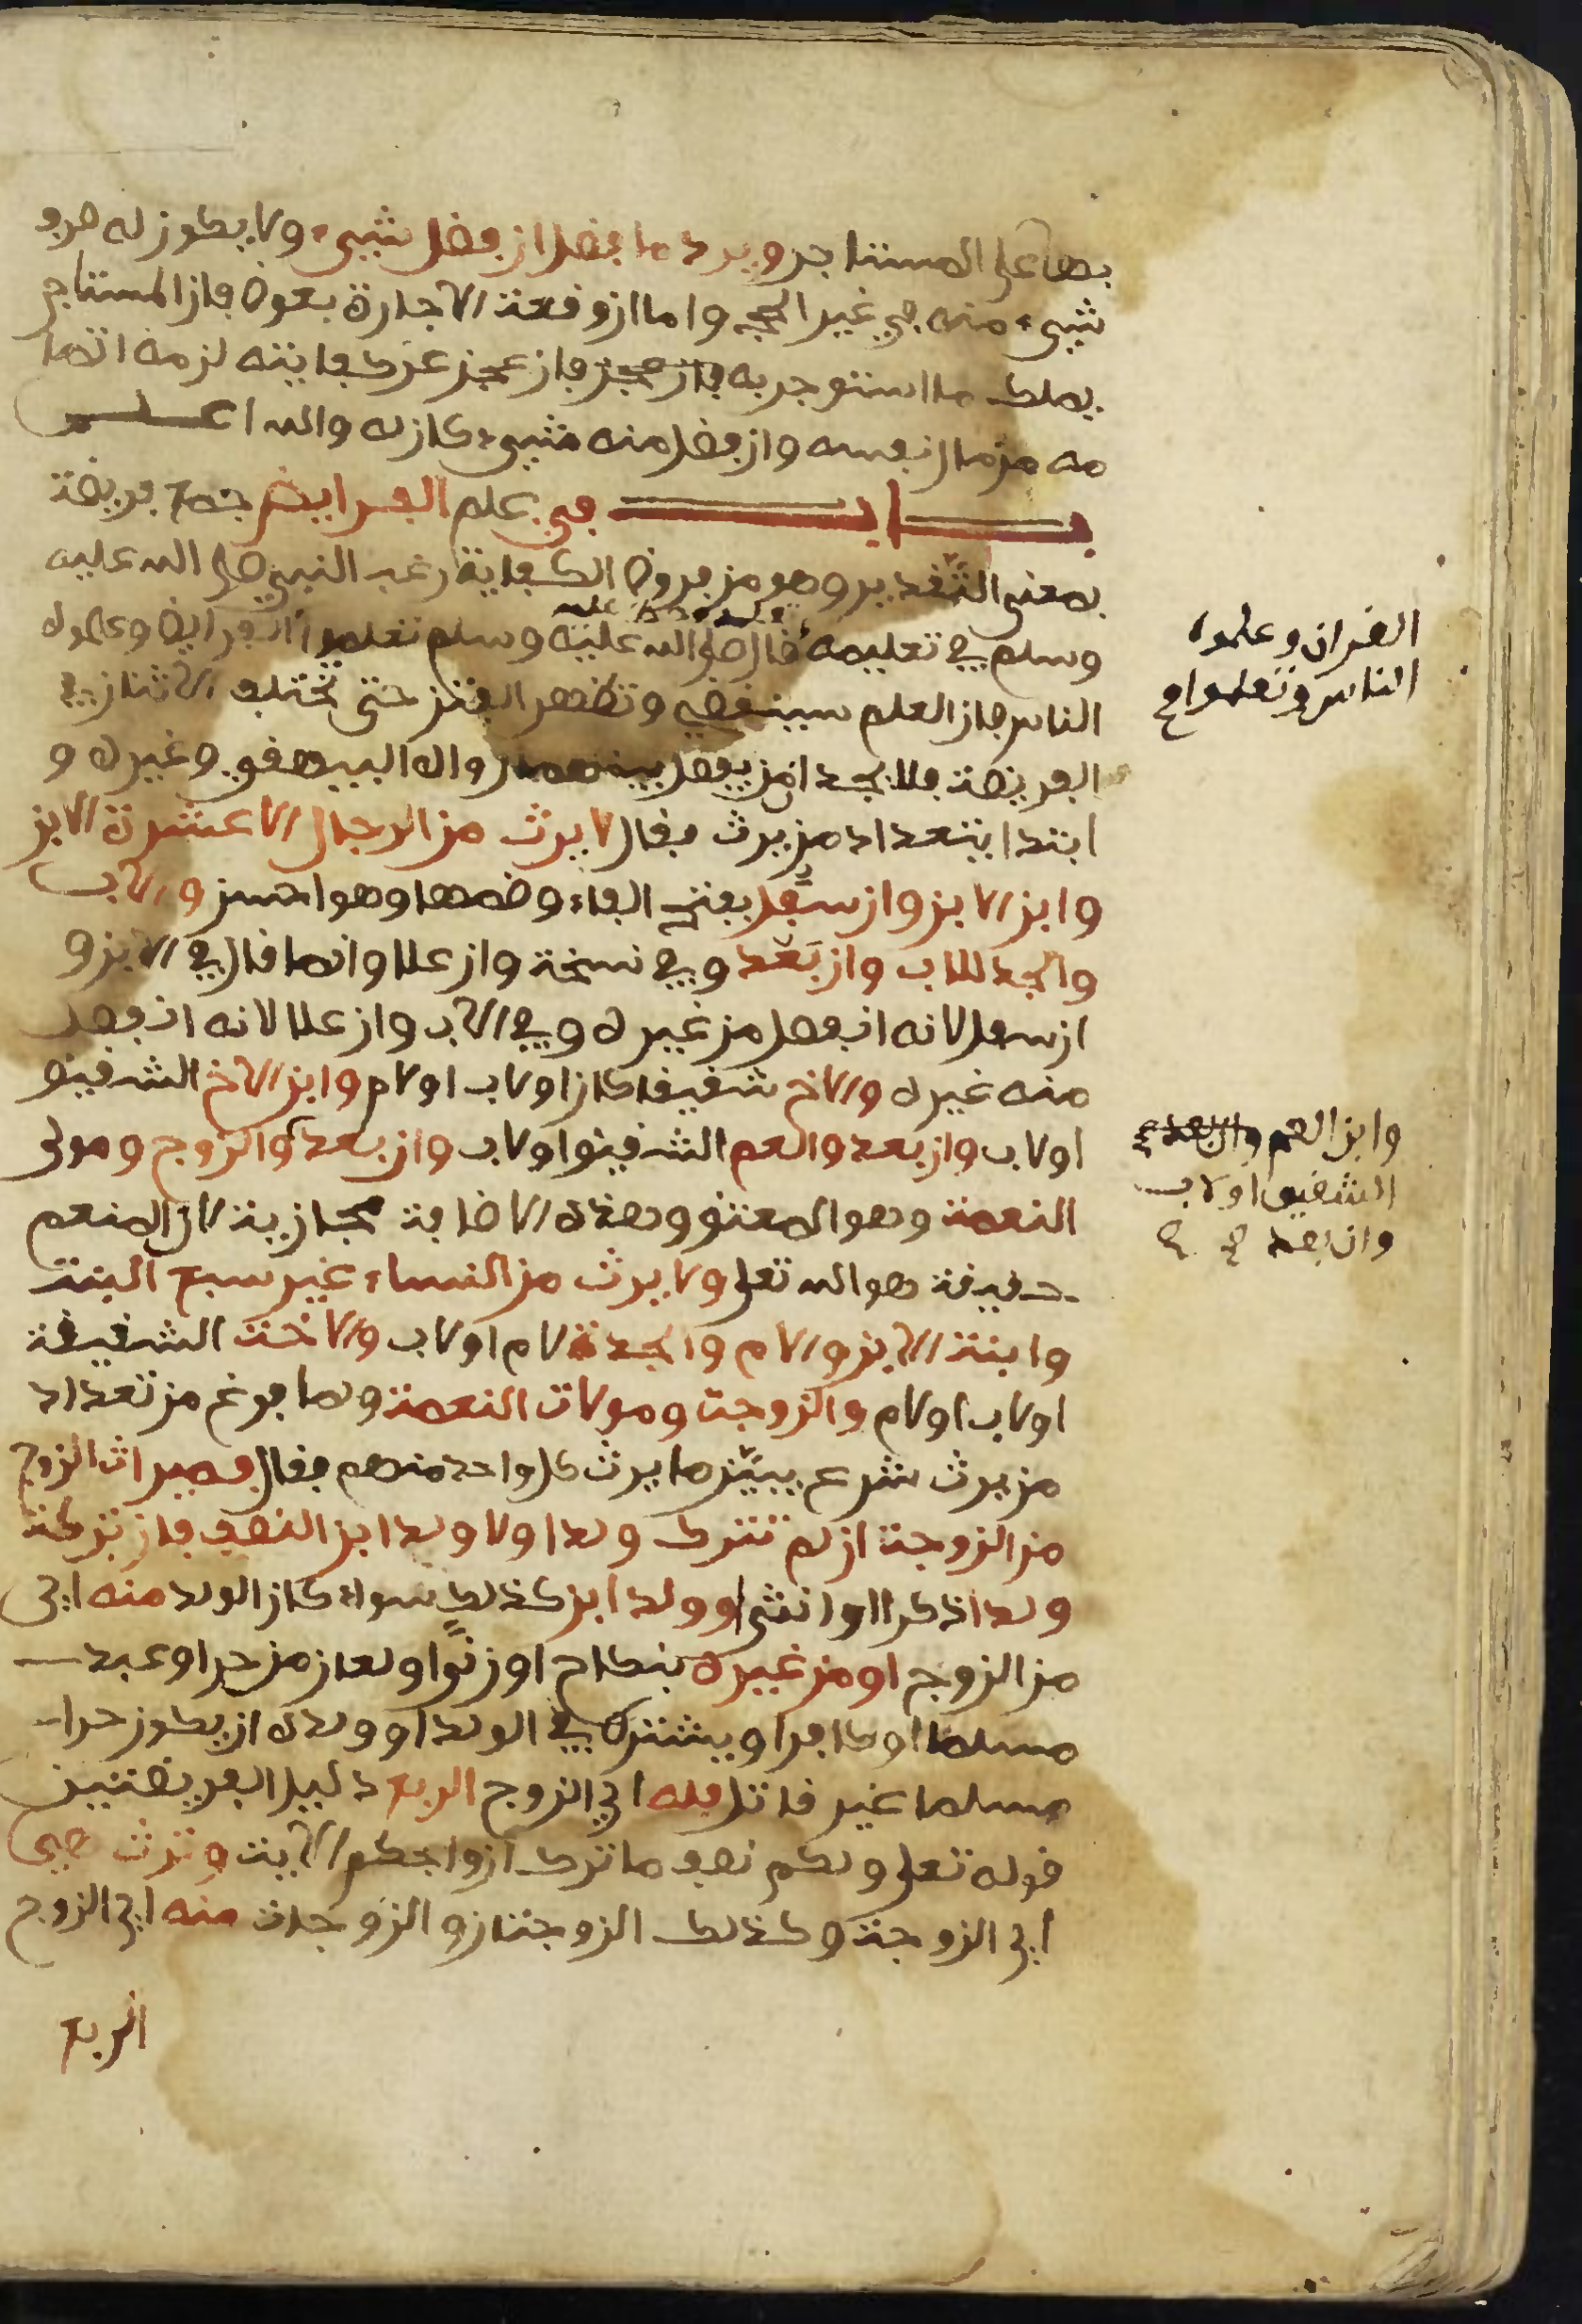 بها على المستاجر ويرد ما فضل ان فضل شيء ولا يكون له صرف
شيء منه في غير الحج واما ان وقعت الاجارة بعوض فان المستاجر
يملك ما استوجر به فان عجز فان عجز عن كفايته لزمه اتما
مه من مال نفسه وان فضل منه شيء كان له والله اعلم
باب في علم الفرايض جمع فريضة
بمعنى التقدير وهو من فروض الكفاية رغب النبي صلى الله عليه
وسلم في تعليمه قال صلى الله عليه وسلم تعلموا الفرايض وعلموه
القران وعلموه
الناس وتعلموا
الناس فان العلم سينقضي وتظهر الفتن حتى تختلف الاثنان في
الفريضة فلا يجدان من يفصل بينهما رواه البيهقي وغيره و
ابتدا بتعداد من يرث فقال لا يرث من الرجال الا عشرة الابن
وابن الابن وان سفل بفتح الفاء وضمها وهو احسن والاب
والجد للاب وان بعد وفي نسخة وان علا وانما قال في الابن و
ان سفل لانه انفصل من غيره وفي الاب وان علا لانه انفصل
منه غيره والاخ شقيقا كان او لاب او لام وابن الاخ الشقيق
او لاب وان بعد والعم الشقيق او لاب وان بعد والزوج ومولى
وابن العم وان بعد
الشقيق او لاب
وان بعد
النعمة وهو المعتق وهذه الاضافة مجازية لان المنعم
حقيقة هو الله تعلى ولا يرث من النساء غير سبع البنت
وابنت الابن والام والجدة لام او لاب والاخت الشقيقة
او لاب او لام والزوجة ومولات النعمة ولما فرغ من تعداد
من يرث شرع يبين ما يرث كل واحد منهم فقال فميراث الزوج
من الزوجة ان لم تترك ولدا ولا ولد ابن النصف فان تركت
ولدا ذكرا او انثى او ولد ابن كذلك سواء كان الولد منه اي
من الزوج او من غيره بنكاح او زنى او لعان من حر او عبد
مسلما او كافرا ويشترط في الولد او ولده ان يكون حرا
مسلما غير قاتل فله اي الزوج الربع دليل الفريضتين
قوله تعلى ولكم نصف ما ترك ازواجكم الاية وترث هي
اي الزوجة وكذلك الزوجتان والزوجات منه اي الزوج
الربع